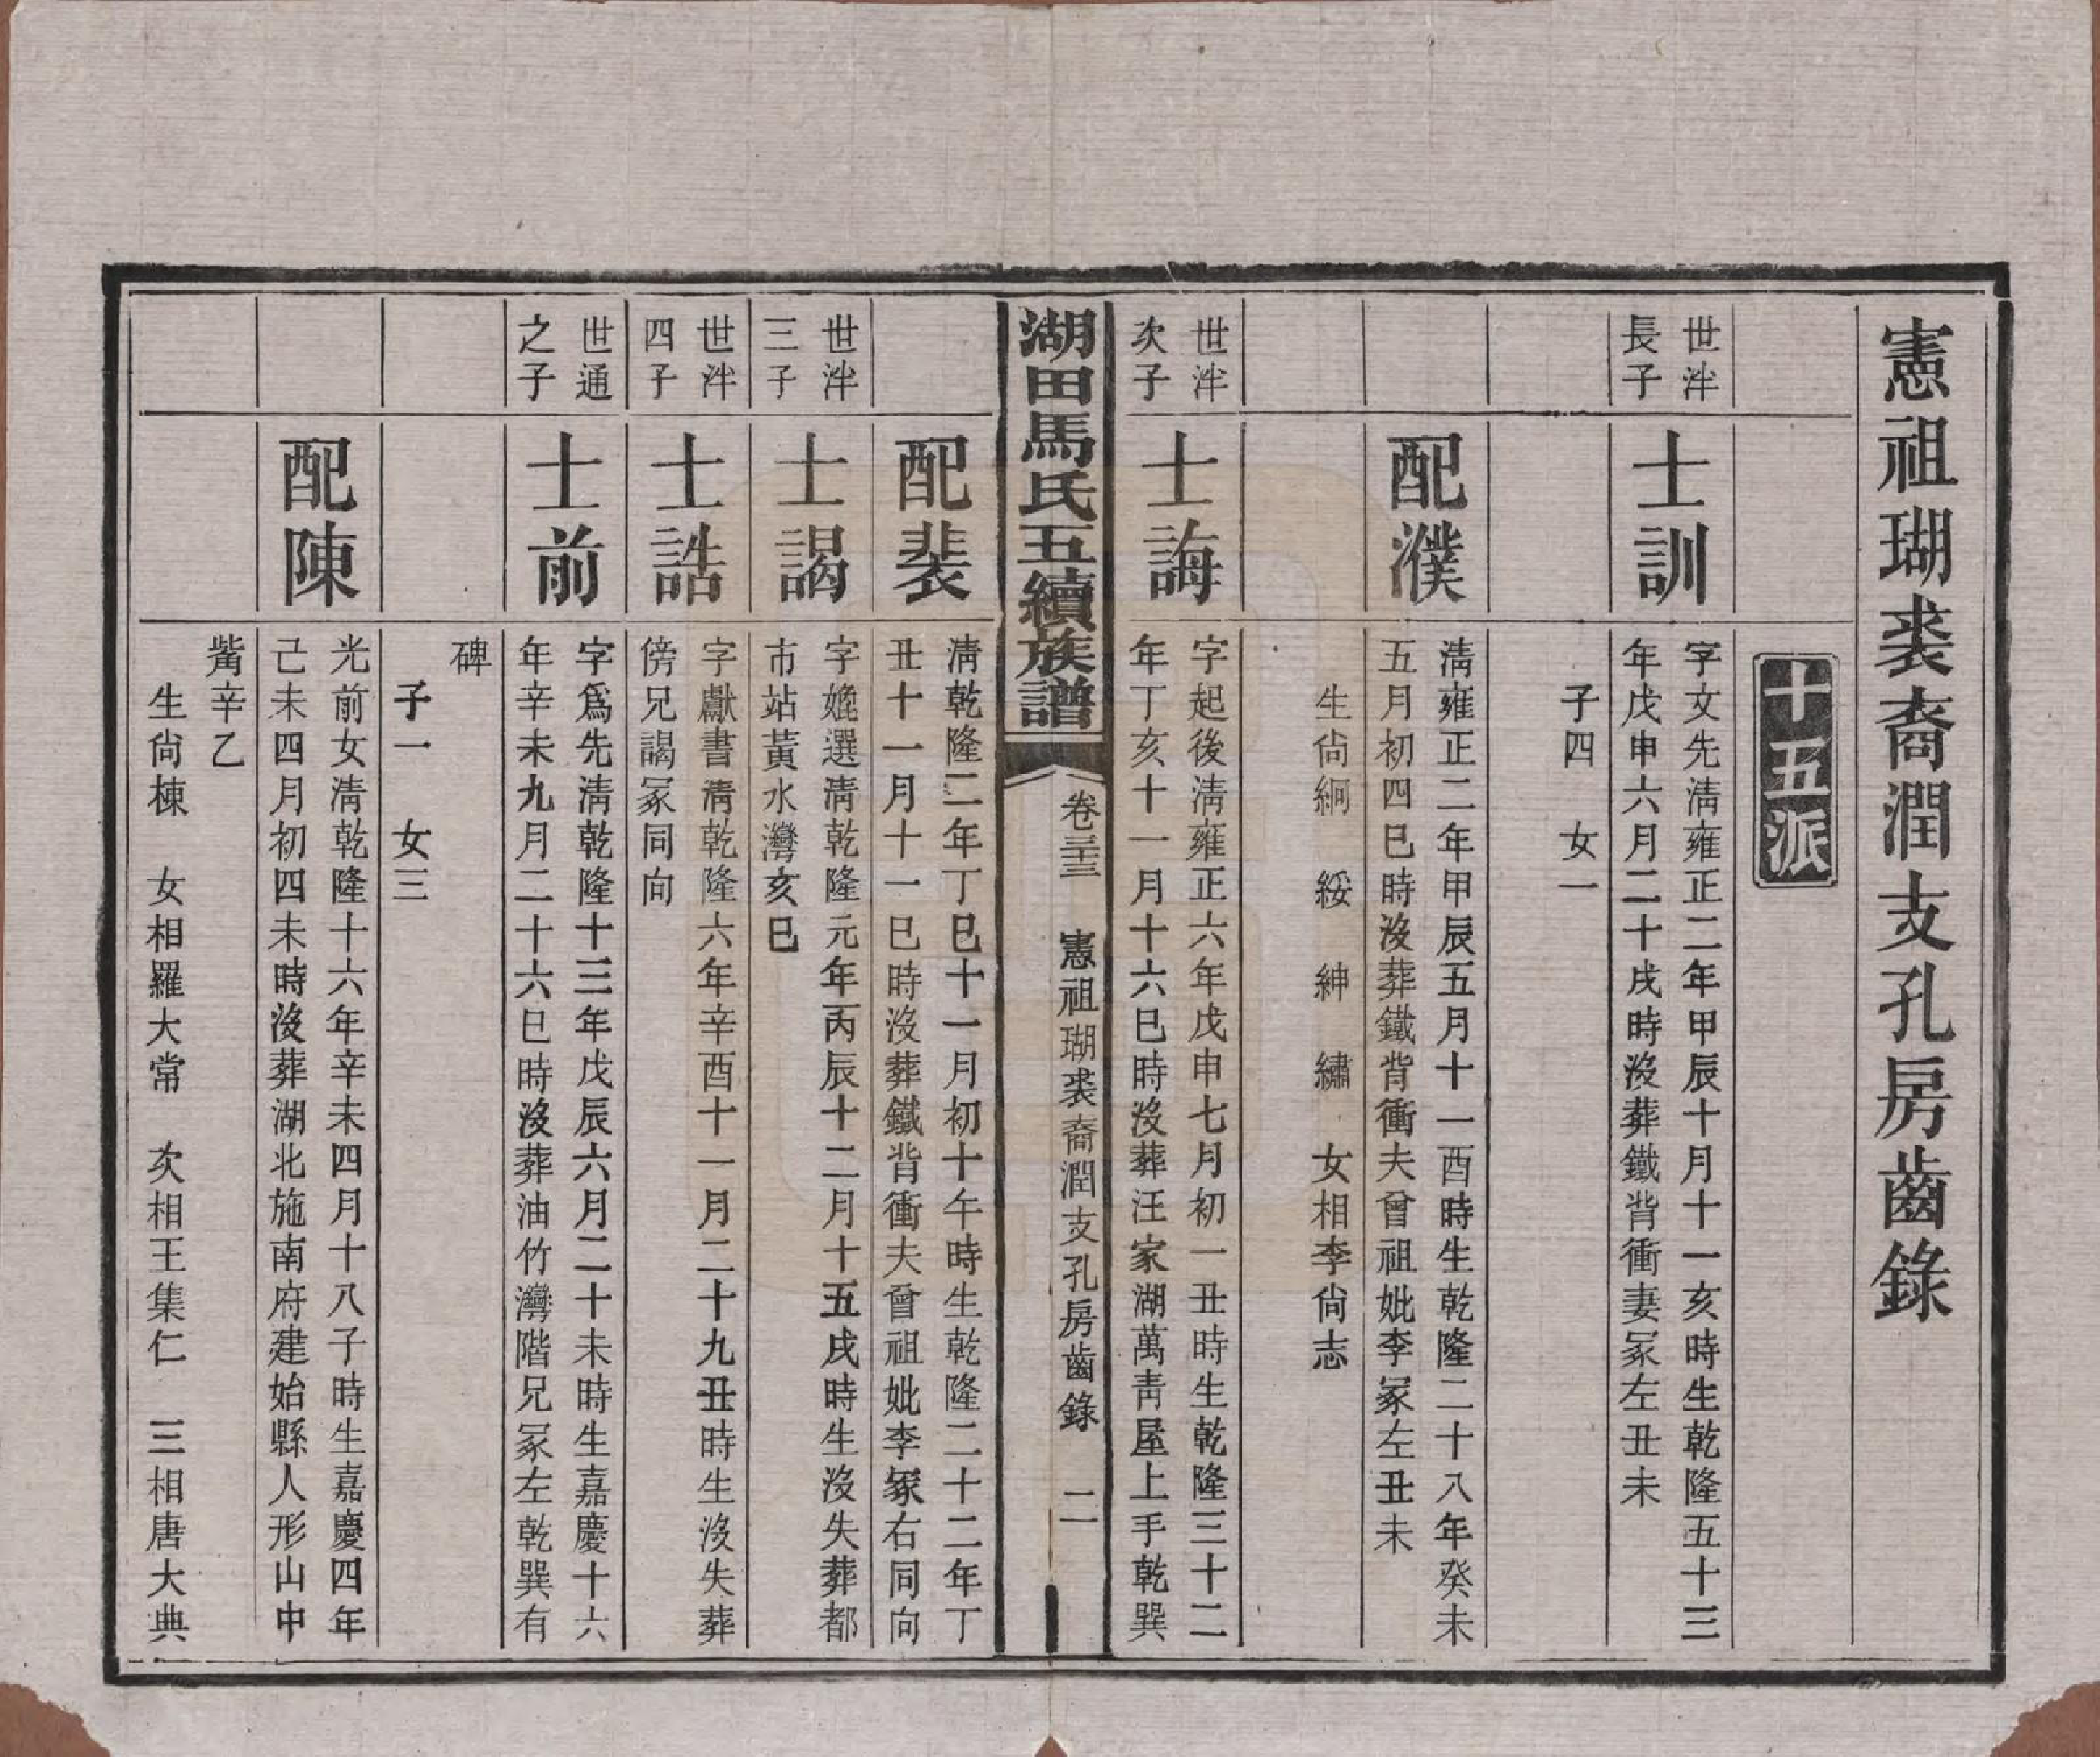 憲祖瑚裘裔潤支孔房齒錄
十五派
世泮
長子
士訓
字文先淸雍正二年甲辰十月十一亥時生乾隆五十三
年戊申六月二十戌時沒葬鐵背衝妻冢左丑未
子四 女一
配濮
淸雍正二年甲辰五月十一酉時生乾隆二十八年癸未
五月初四巳時沒葬鐵背衝夫曾祖妣李冢左丑未
生尙絅 綏 紳 繡 女相李尙志
世泮
次子
士誨
字起後淸雍正六年戊申七月初一丑時生乾隆三十二
年丁亥十一月十六巳時沒葬汪家湖萬靑屋上手乾巽
湖田馬氏五續族譜
卷三十三 憲祖瑚裘裔潤支孔房齒錄 二
配裴
淸乾隆二年丁巳十一月初十午時生乾隆二十二年丁
丑十一月十一巳時沒葬鐵背衝夫曾祖妣李冢右同向
世泮
三子
士謁
字嬎選淸乾隆元年丙辰十二月十五戌時生沒失葬都
市站黃水灣亥巳
世泮
四子
士誥
字獻書淸乾隆六年辛酉十一月二十九丑時生沒失葬
傍兄謁冢同向
世通
之子
士前
字爲先淸乾隆十三年戊辰六月二十未時生嘉慶十六
年辛未九月二十六巳時沒葬油竹灣階兄冢左乾巽有
碑
子一 女三
配陳
光前女淸乾隆十六年辛未四月十八子時生嘉慶四年
己未四月初四未時沒葬湖北施南府建始縣人形山中
觜辛乙
生尙棟 女相羅大常 次相王集仁 三相唐大典